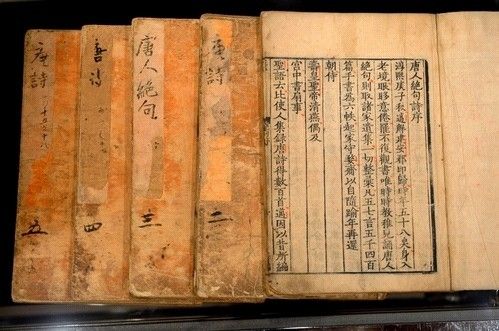 唐人絕句詩序
淳熙庚子秋邁解建安郡印歸時年五十八矣身入
老境眼眵意倦罷不復觀書唯時時教稚兒誦唐人
絕句則取諸家遺集一切整彙凡五七言五千四百
篇手書為六帙起家守婺齎以自隨踰年再還
朝侍
壽皇聖帝清燕偶及
宮中書扇事
聖語云比使人集錄唐詩得數百首邁因以昔所編
唐詩
二
唐人絕句
三
唐詩
四
唐詩
五